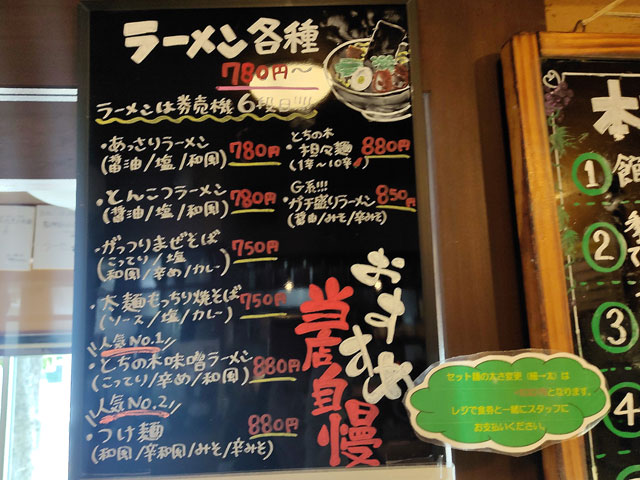 ラーメン各種
780円～
ラーメンは券売機6段目!!!!
・あっさりラーメン
(醤油/塩/和風) 780円
・とんこつラーメン
(醤油/塩/和風) 780円
・がっつりまぜそば
(こってり/塩
和風/辛め/カレー) 750円
・太麺もっちり焼そば
(ソース/塩/カレー) 750円
\\人気No.1//
・とちの木味噌ラーメン
(こってり/辛め/和風) 880円
\\人気No.2//
・つけ麺 880円
(和風/辛和風/みそ/辛みそ)
とちの木
・担々麺 880円
(1辛～10辛)
G系!!!
・ガチ盛りラーメン 850円
(醤油/みそ/辛みそ)
おすすめ
当店自慢
セット麺の太さ変更(細→太)は
となります。
レジで食券と一緒にスタッフに
お支払いください。
本
1 館
2
3
4